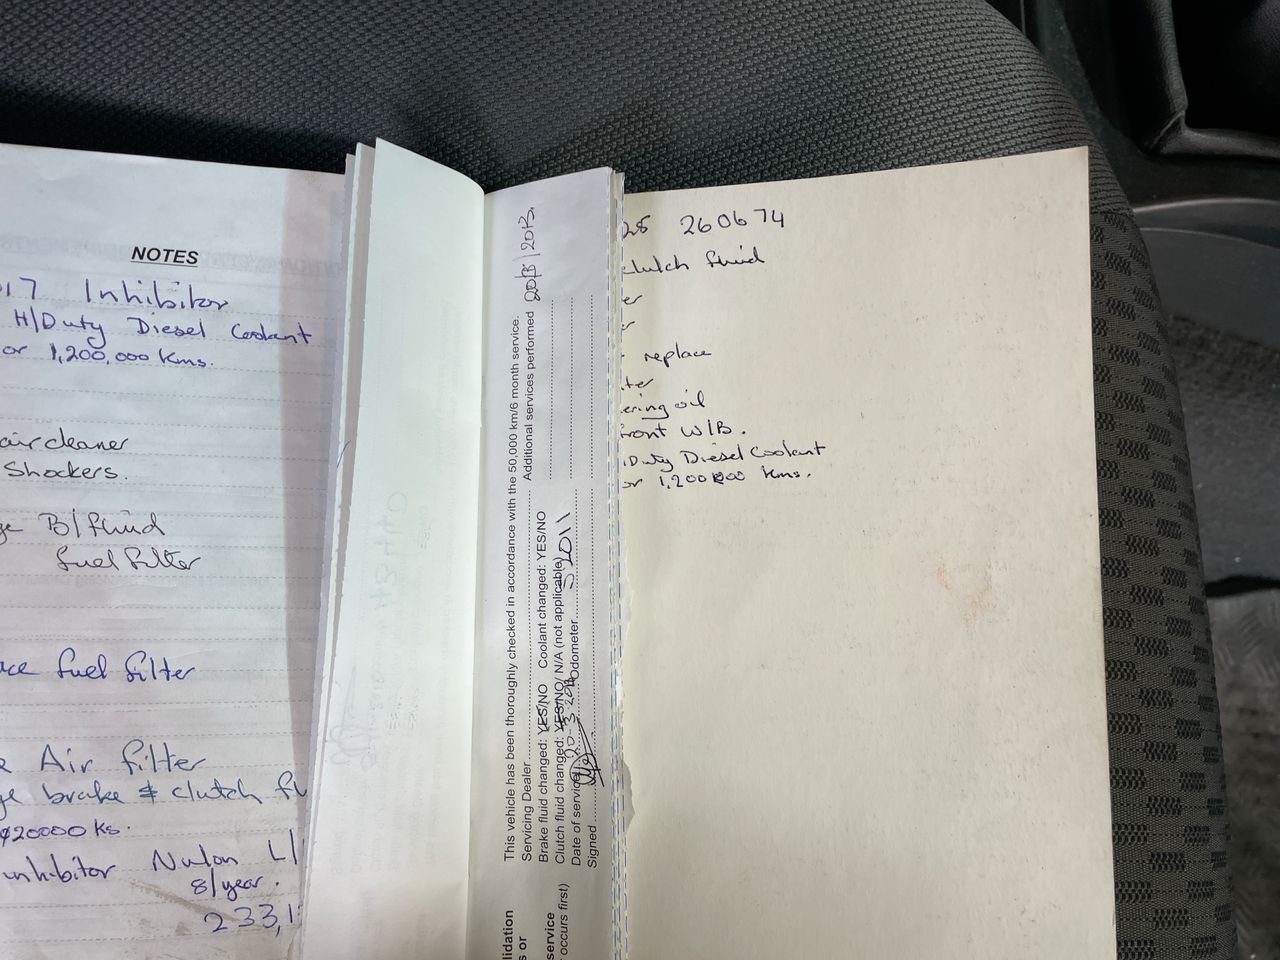 NOTES
17 Inhibitor
H/Duty Diesel Coolant
or 1,200,000 Kms.
aircleaner
Shockers.
ge B/fluid
fuel filter
ace fuel filter
e Air filter
ge brake & clutch fl
20000 Ks.
inhibitor Nulon L/
8/year.
233,1
This vehicle has been thoroughly checked in accordance with the 50,000 km/6 month service.
Servicing Dealer Additional services performed
Brake fluid changed: YES/NO Coolant changed: YES/NO
Clutch fluid changed: YES/NO/ N/A (not applicable)
Date of service 20-3-2013 Odometer
Signed
lidation
s or
service
occurs first)
260674
clutch fluid
er
r
replace
ter
ering oil
front W/B.
/Duty Diesel Coolant
or 1,200,000 kms.